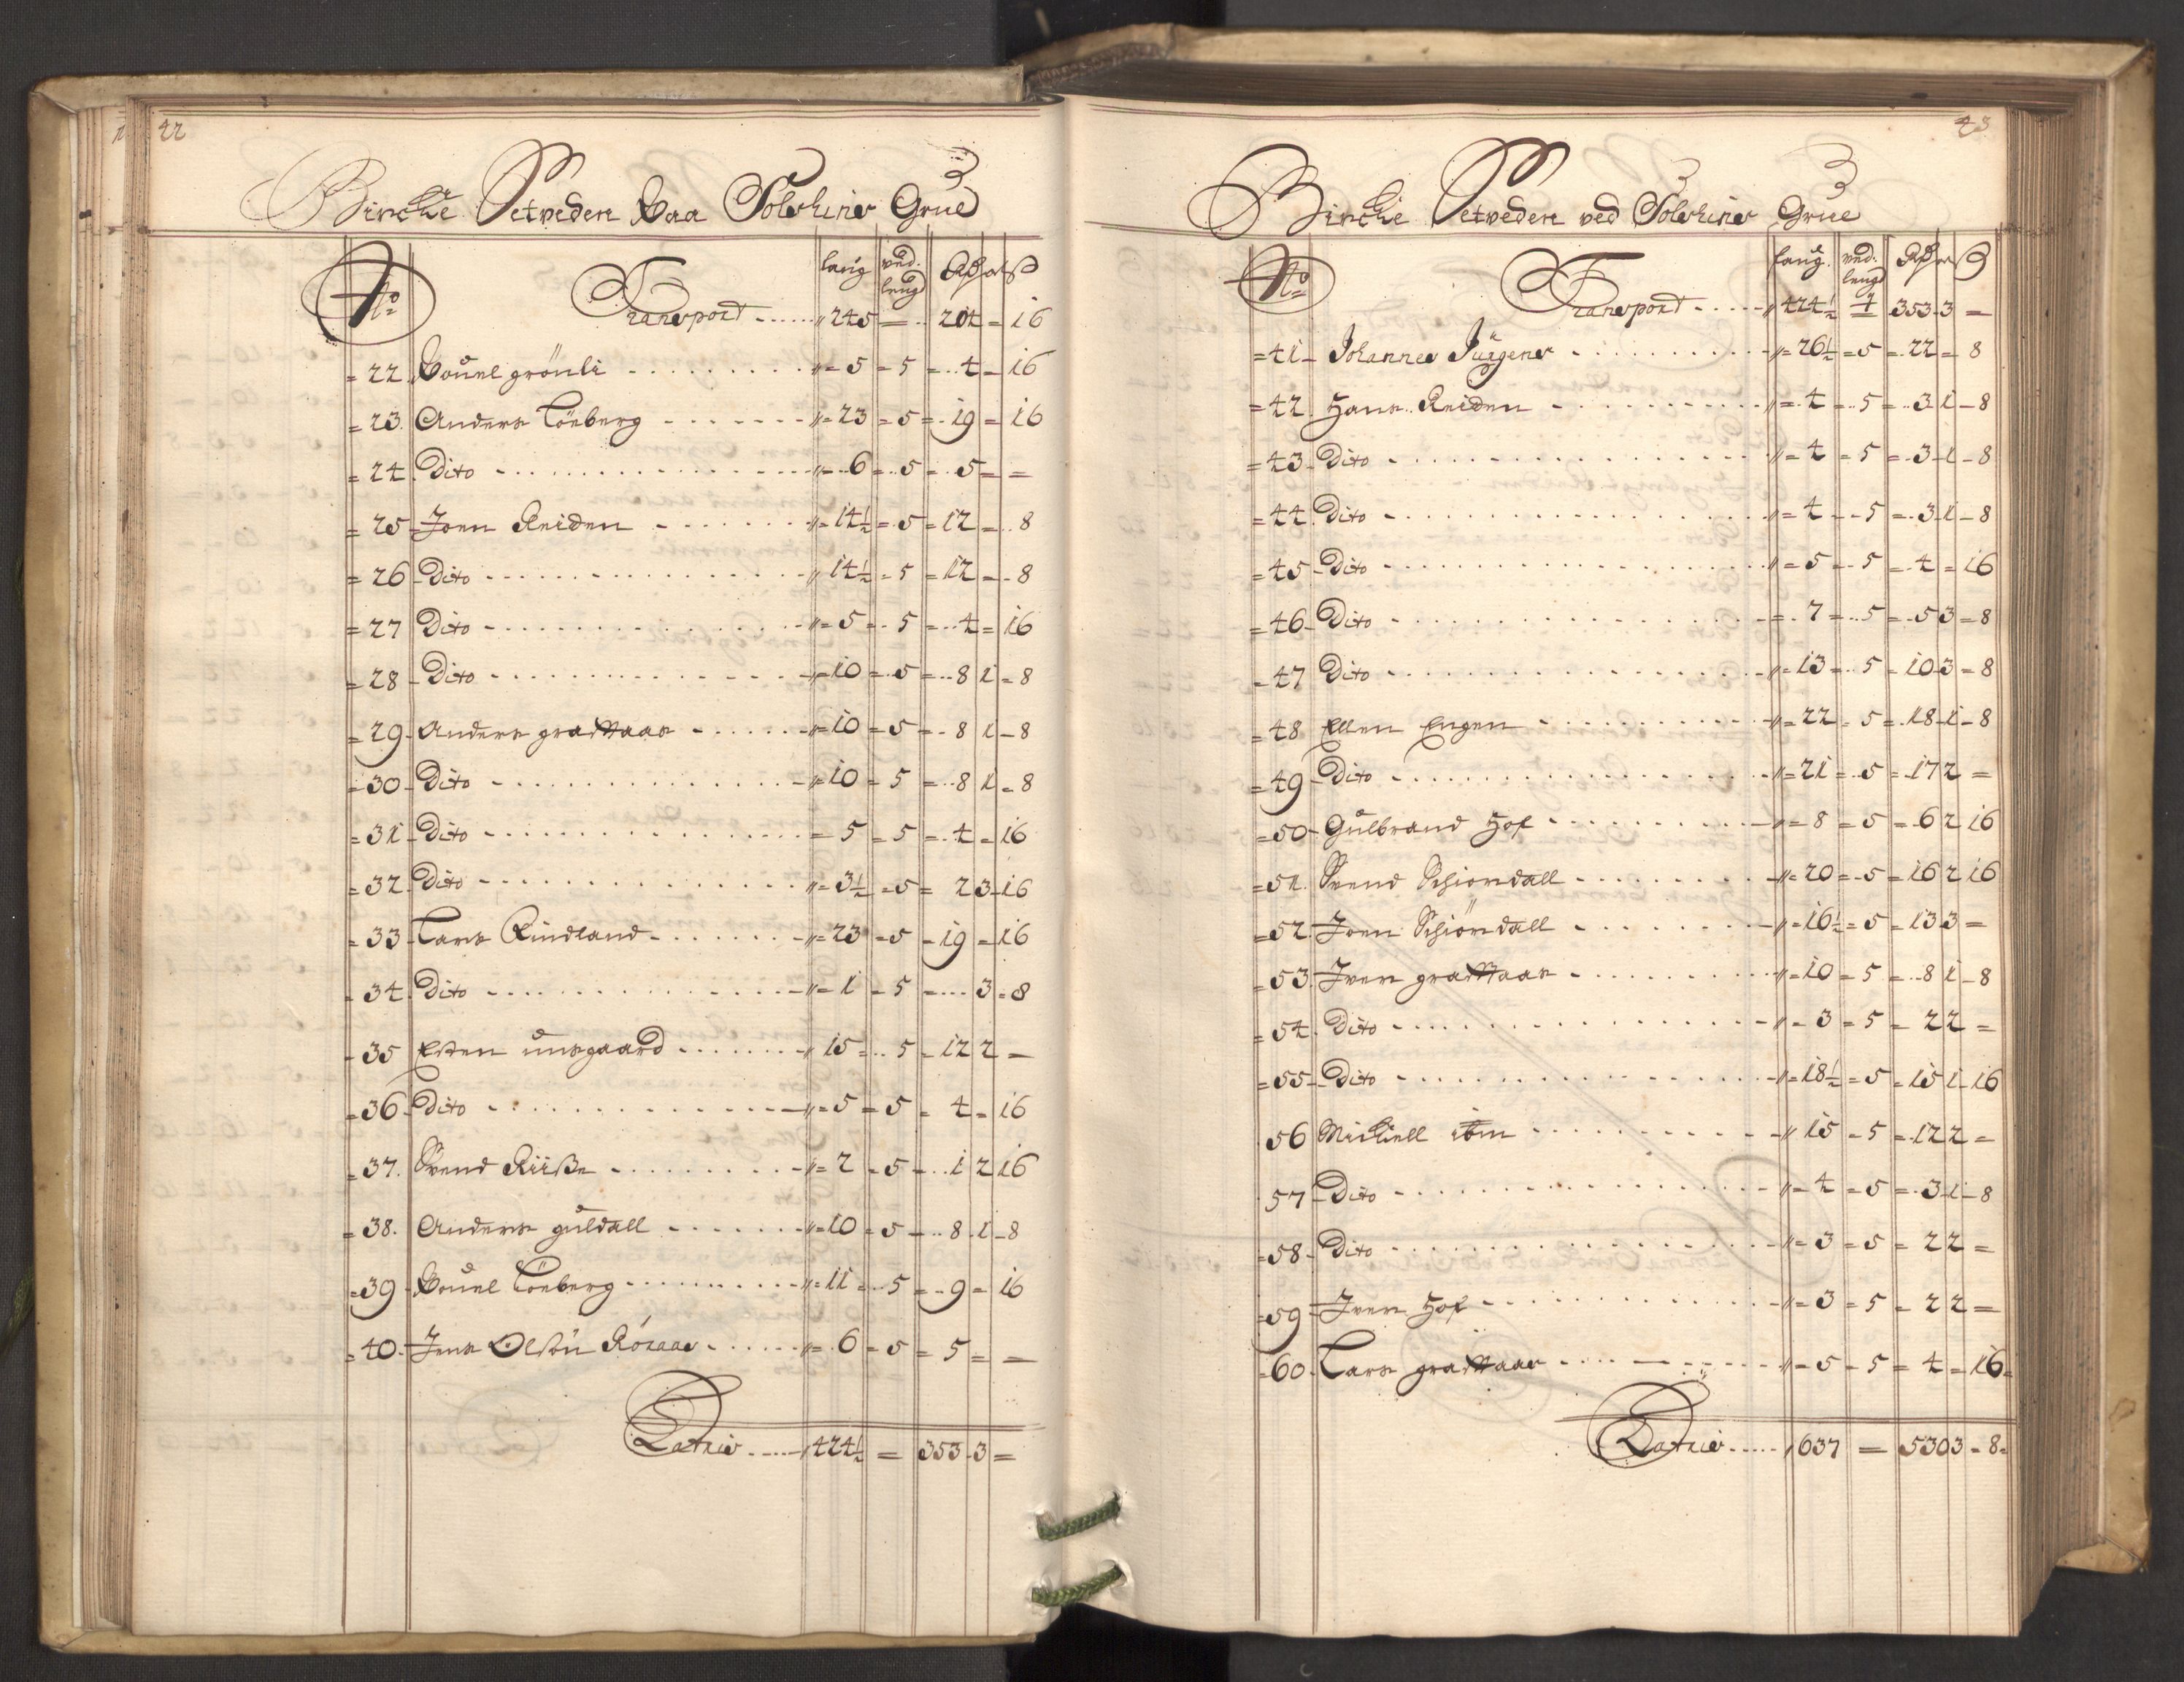 42
Bircke Setveden Paa Solskins Grue
No
faug ved. lengd Rdr ort ß
Transport ..... " 245 = .. 204 = 16
= 22. Pouel grönli ......... " = 5 = 5 = .. 4 = 16
= 23. Anders Lönberg ....... " = 23 = 5 = . 19 = 16
= 24. Dito ......... " = .. 6 = .. 5 = .. 5 = =
= 25 - Joen Reiden ....... " = 14½ = . 5 = 12 = .. 8
= 26 - Dito ......... " 14½ = 5 = 12 = . 8
= 27 Dito ......... " = 5 = . 5 = .. 4 = 16
= 28 - Dito ......... " = 10 = . 5 = .. 8 1 = 8
= 29 - Anders gradtaas ...... " = 10 = 5 = . 8 1 - 8
= 30 - Dito ......... " = 10 = 5 = .. 8 1 = 8
= 31 - Dito ......... = 5 = 5 = . 4 = 16
= 32. Dito ......... " = 3½ = 5 = 2 3 - 16
= 33 - Lars Rindland ....... " = 23 = 5 - 19 = 16
= 34. Dito ......... " = 1 = 5 = .... 3 = 8
= 35 Esten unsgaard ....... " 15 = .. 5 = 12 2 =
= 36 - Dito ......... " = 5 = 5 = 4 = 16
= 37. Svend Riiße ......... " = 2 = 5 = .. 1 2 16
= 38. Anders guldall ....... " = 10 = 5 = .. 8 . 1 - 8
= 39 - Pouel Lönberg ......... " = 11 = . 5 = . 9 = 16
= 40. Jens Olsön Röraas ...... " = 6 = 5 = 5 = =
Latus ..... 424½ = 353 . 3 =
43
Bircke Setveden ved Solskins Grue
No
faug. ved. lengd Rdr ort ß
Transport ..... " 424½ 353 . 3 =
= 41 - Johannes Jürgens ......... " = 26½ = 5 = . 22 = 8
= 42. Hans Reiden ......... " = . 4 = .. 5 = .. 3 . 1 - 8
= 43 - Dito ......... " = 4 = 5 = . 3 - 1 - 8
= 44. Dito ......... " = 4 = . 5 = . 3 . 1 - 8
= 45 - Dito ......... " = 5 = . 5 = . 4 = 16
= 46 - Dito ......... = . 7 = .. 5 = . 5 3 = 8
= 47 Dito ......... " = 13 = . 5 = 10 3 = 8
= 48 Ellen Engen ......... " = 22 = 5 = . 18 . 1 - 8
= 49 - Dito ......... " = 21 = . 5 = . 17 2 =
= 50 - Gulbrand Hof ......... " = 8 = 5 = . 6 2 16
= 51. Svend Schiöndall ......... " = 20 = 5 = 16 2 16
= 52. Joen Schiöndall ....... " = 16½ = 5 = 13 3 =
= 53. Iver gradtaas ......... " = 10 = 5 = .. 8 1 - 8
= 54. Dito ......... " = 3 = 5 = 2 2 =
= 55 - Dito ......... " = 18½ = 5 = 15 1 - 16
56 Mickell ibm ......... " 15 = 5 = . 12 2 =
57 - Dito ......... " = 4 = 5 = . 3 - 1 - 8
= 58 - Dito ......... " = 3 = 5 = 2 2 =
= 59 - Iver Hof ......... " = 3 = 5 = 2 2 =
= 60. Lars gradtaas ......... " = 5 = 5 = 4 = 16
Latus ..... 637 = 530 3 = 8